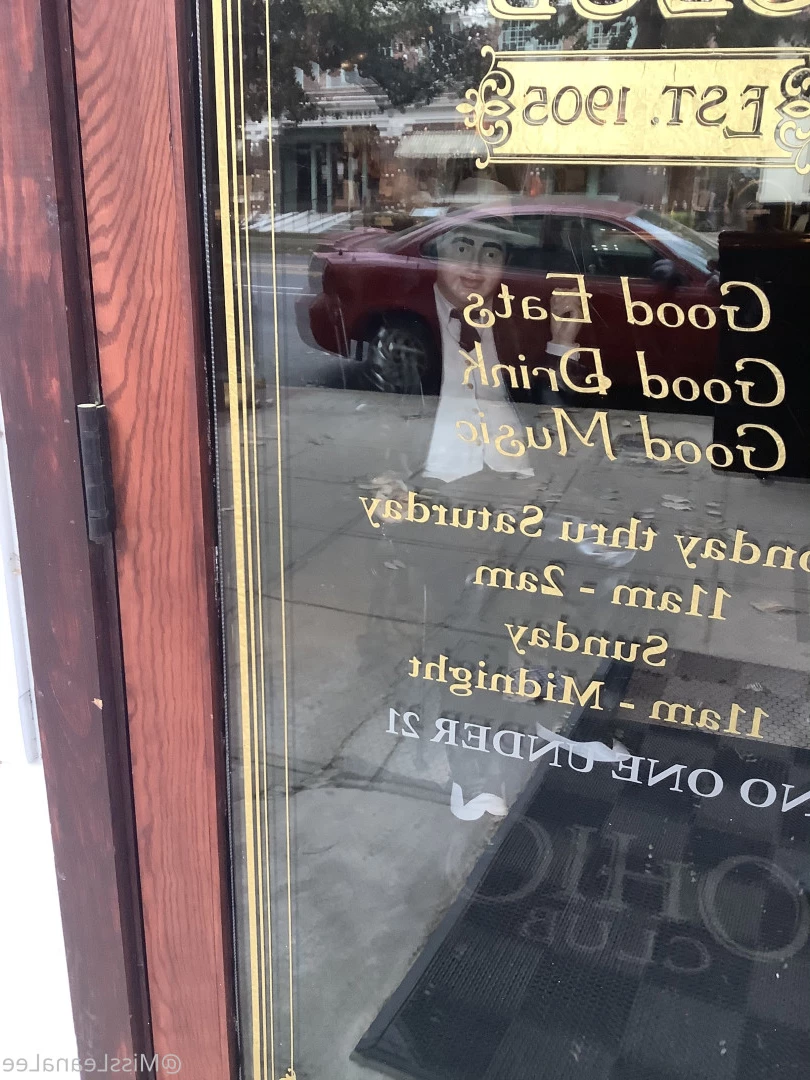 EST. 1905
Good Eats
Good Drink
Good Music
onday thru Saturday
11am - 2am
Sunday
11am - Midnight
NO ONE UNDER 21
OHIO
CLUB
@MissLeanaLee